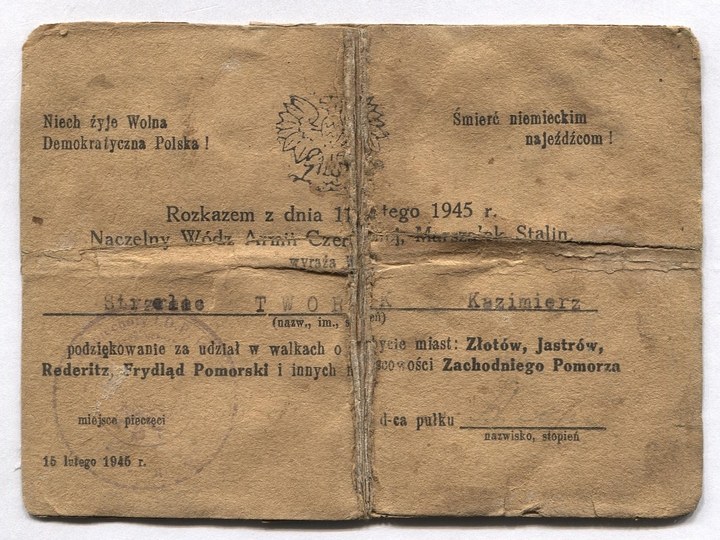 Niech żyje Wolna
Demokratyczna Polska !
Śmierć niemieckim
najeźdźcom !
Rozkazem z dnia 11 lutego 1945 r.
Naczelny Wódz Armii Czerwonej, Marszałek Stalin,
wyraża
Strzelec TWOREK Kazimierz
(nazw., im., stopień)
podziękowanie za udział w walkach o zdobycie miast: Złotów, Jastrów,
Rederitz, Frydląd Pomorski i innych miejscowości Zachodniego Pomorza
miejsce pieczęci
d-ca pułku
nazwisko, stopień
15 lutego 1945 r.